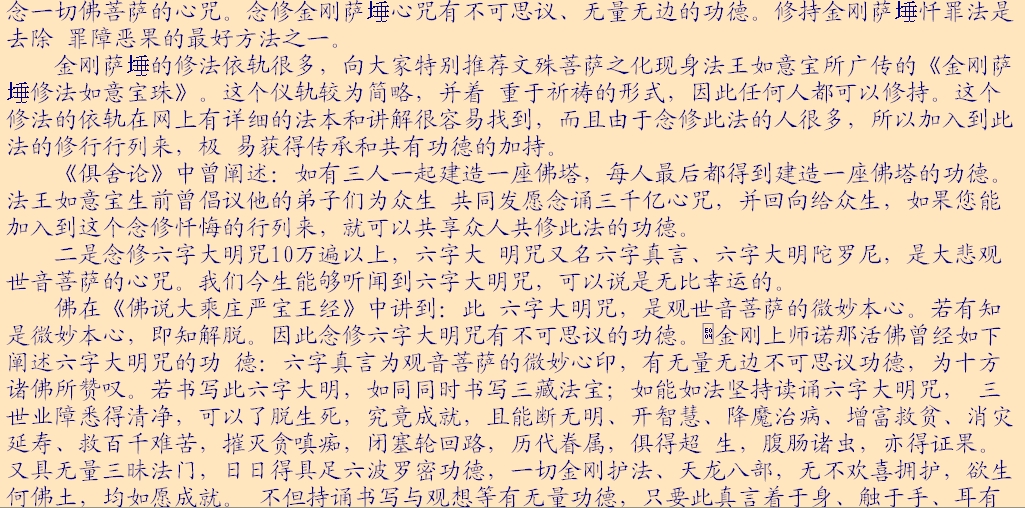 念一切佛菩萨的心咒。念修金刚萨埵心咒有不可思议、无量无边的功德。修持金刚萨埵忏罪法是
去除 罪障恶果的最好方法之一。
金刚萨埵的修法依轨很多，向大家特别推荐文殊菩萨之化现身法王如意宝所广传的《金刚萨
埵修法如意宝珠》。这个仪轨较为简略，并着 重于祈祷的形式，因此任何人都可以修持。这个
修法的依轨在网上有详细的法本和讲解很容易找到，而且由于念修此法的人很多，所以加入到此
法的修行行列来，极 易获得传承和共有功德的加持。
《俱舍论》中曾阐述：如有三人一起建造一座佛塔，每人最后都得到建造一座佛塔的功德。
法王如意宝生前曾倡议他的弟子们为众生 共同发愿念诵三千亿心咒，并回向给众生，如果您能
加入到这个念修忏悔的行列来，就可以共享众人共修此法的功德。
二是念修六字大明咒10万遍以上，六字大 明咒又名六字真言、六字大明陀罗尼，是大悲观
世音菩萨的心咒。我们今生能够听闻到六字大明咒，可以说是无比幸运的。
佛在《佛说大乘庄严宝王经》中讲到：此 六字大明咒，是观世音菩萨的微妙本心。若有知
是微妙本心，即知解脱。因此念修六字大明咒有不可思议的功德。金刚上师诺那活佛曾经如下
阐述六字大明咒的功 德：六字真言为观音菩萨的微妙心印，有无量无边不可思议功德，为十方
诸佛所赞叹。若书写此六字大明，如同同时书写三藏法宝；如能如法坚持读诵六字大明咒， 三
世业障悉得清净，可以了脱生死，究竟成就，且能断无明、开智慧、降魔治病、增富救贫、消灾
延寿、救百千难苦，摧灭贪嗔痴，闭塞轮回路，历代眷属，俱得超 生，腹肠诸虫，亦得证果。
又具无量三昧法门，日日得具足六波罗密功德，一切金刚护法、天龙八部，无不欢喜拥护，欲生
何佛土，均如愿成就。 不但持诵书写与观想等有无量功德，只要此真言着于身、触于手、耳有